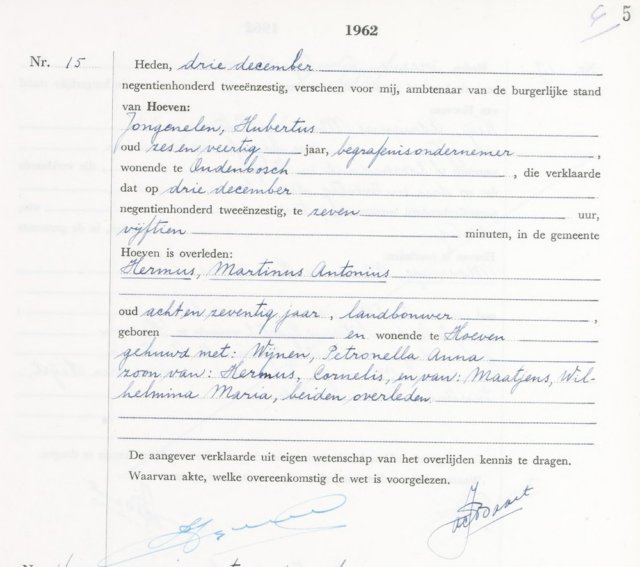 5
1962
Nr. 15 Heden, drie december
negentienhonderd tweeënzestig, verscheen voor mij, ambtenaar van de burgerlijke stand
van Hoeven:
Jongenelen, Hubertus
oud zes en veertig jaar, begrafenisondernemer ,
wonende te Oudenbosch , die verklaarde
dat op drie december
negentienhonderd tweeënzestig, te zeven uur,
vijftien minuten, in de gemeente
Hoeven is overleden:
Hermus, Martinus Antonius
oud acht en zeventig jaar , landbouwer ,
geboren en wonende te Hoeven
gehuwd met: Wijnen, Petronella Anna
zoon van: Hermus, Cornelis, en van: Maatjens, Wil-
helmina Maria, beiden overleden
De aangever verklaarde uit eigen wetenschap van het overlijden kennis te dragen.
Waarvan akte, welke overeenkomstig de wet is voorgelezen.